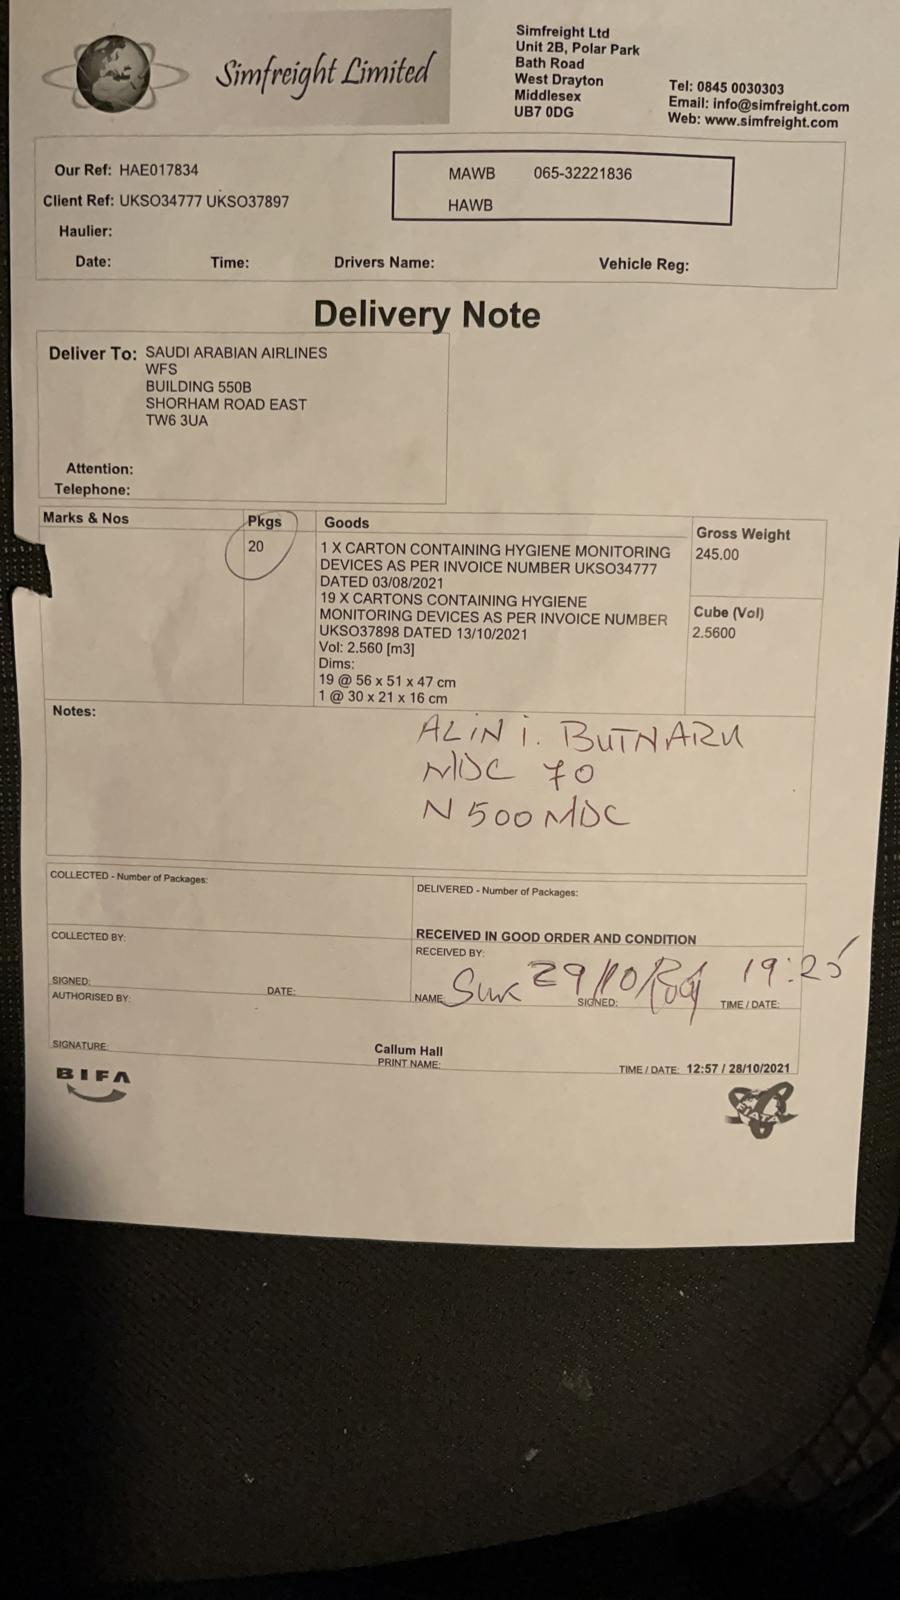 Simfreight Limited
Simfreight Ltd
Unit 2B, Polar Park
Bath Road
West Drayton
Middlesex
UB7 0DG
Tel: 0845 0030303
Email: info@simfreight.com
Web: www.simfreight.com
Our Ref: HAE017834
Client Ref: UKSO34777 UKSO37897
Haulier:
Date: Time: Drivers Name: Vehicle Reg:
MAWB 065-32221836
HAWB
Delivery Note
Deliver To: SAUDI ARABIAN AIRLINES
WFS
BUILDING 550B
SHORHAM ROAD EAST
TW6 3UA
Attention:
Telephone:
Marks & Nos
Pkgs
20
Goods
1 X CARTON CONTAINING HYGIENE MONITORING
DEVICES AS PER INVOICE NUMBER UKSO34777
DATED 03/08/2021
19 X CARTONS CONTAINING HYGIENE
MONITORING DEVICES AS PER INVOICE NUMBER
UKSO37898 DATED 13/10/2021
Vol: 2.560 [m3]
Dims:
19 @ 56 x 51 x 47 cm
1 @ 30 x 21 x 16 cm
Gross Weight
245.00
Cube (Vol)
2.5600
Notes:
ALIN i. BUTNARU
MDC 70
N 500 MDC
COLLECTED - Number of Packages:
DELIVERED - Number of Packages:
COLLECTED BY:
RECEIVED IN GOOD ORDER AND CONDITION
RECEIVED BY:
SIGNED: DATE:
NAME: 29/10/ SIGNED: 19:25 TIME / DATE:
AUTHORISED BY:
SIGNATURE:
Callum Hall
PRINT NAME:
TIME / DATE: 12:57 / 28/10/2021
BIFA
FIATA